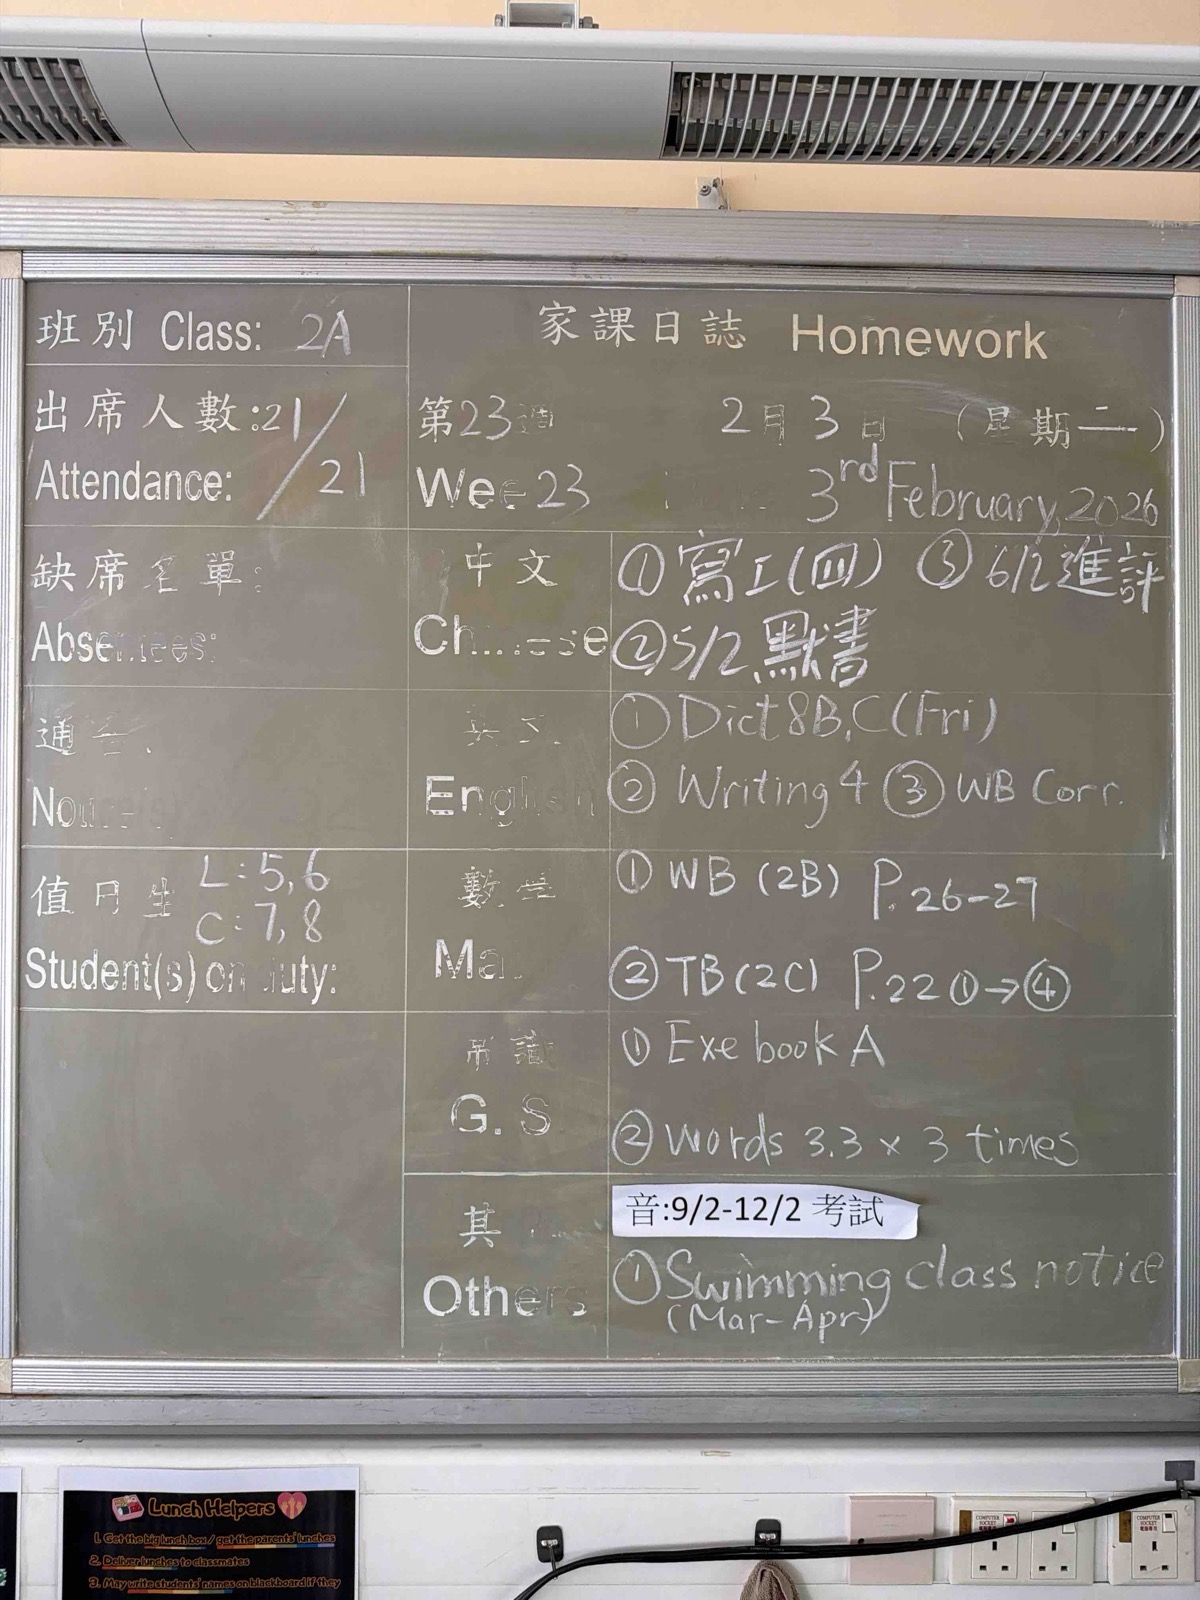 班別 Class: 2A
家課日誌 Homework
出席人數:21/21
Attendance:
第23週 2月3日 (星期二)
Wee 23 3rd February, 2026
缺席名單:
Absentees:
中文
Chinese
① 寫工(四) ③ 6/2進評
② 5/2 默書
通告
英文
English
① Dict 8B,C (Fri)
② Writing 4 ③ WB Corr.
值日生 L:5,6
C:7,8
Student(s) on duty:
數學
Ma
① WB (2B) P.26-27
② TB (2C) P.22 ①→④
常識
G. S
① Exe book A
② Words 3.3 x 3 times
其
Others
音:9/2-12/2 考試
① Swimming class notice
(Mar-Apr)
Lunch Helpers
1. Get the big lunch box / get the parents' lunches
2. Deliver lunches to classmates
3. May write students' names on blackboard if they
COMPUTER SOCKET
COMPUTER SOCKET